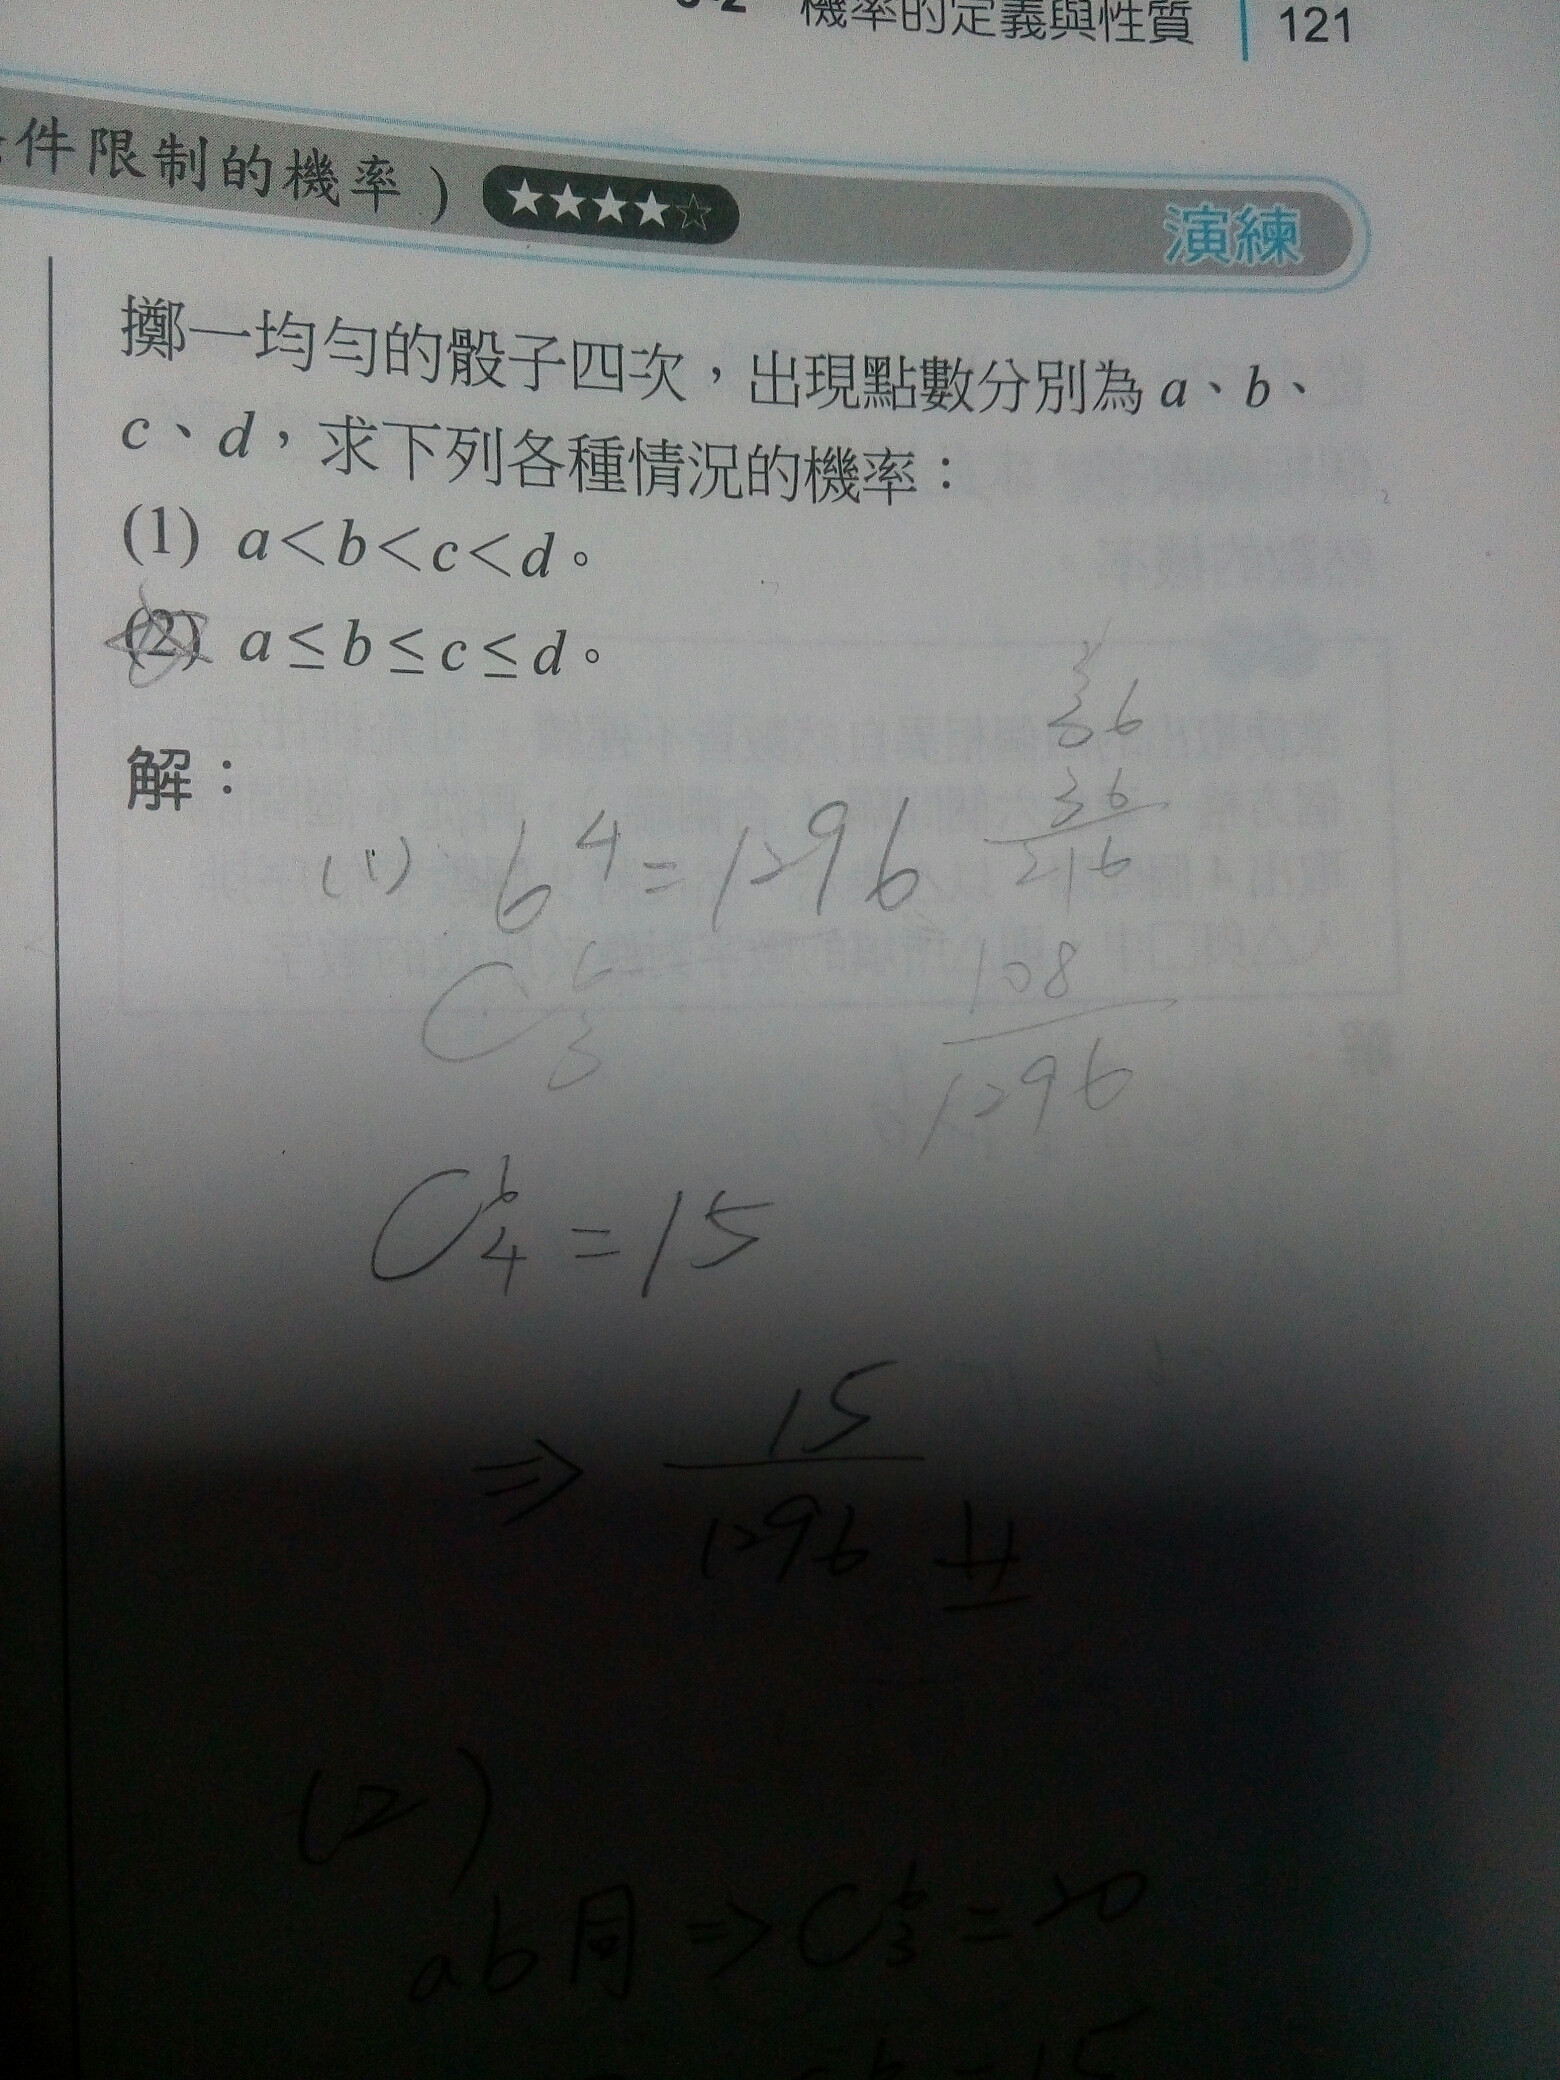 機率的定義與性質 121
件限制的機率) ★★★★☆ 演練
擲一均勻的骰子四次，出現點數分別為 a、b、
c、d，求下列各種情況的機率：
(1) a<b<c<d。
(2) a≤b≤c≤d。
解：
(1) 6^4=1296
36
36
216
C^6_3
108
1296
C^6_4=15
⇒ 15/1296
(2)
ab同 ⇒ C^6_3=20
=15